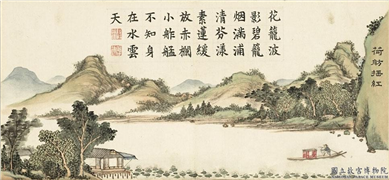 花籠波
影碧籠
烟滿浦
清芬漾
素運緩
放赤欄
小舴艋
不知身
在水雲
天
荷舫搖紅
國立故宮博物院